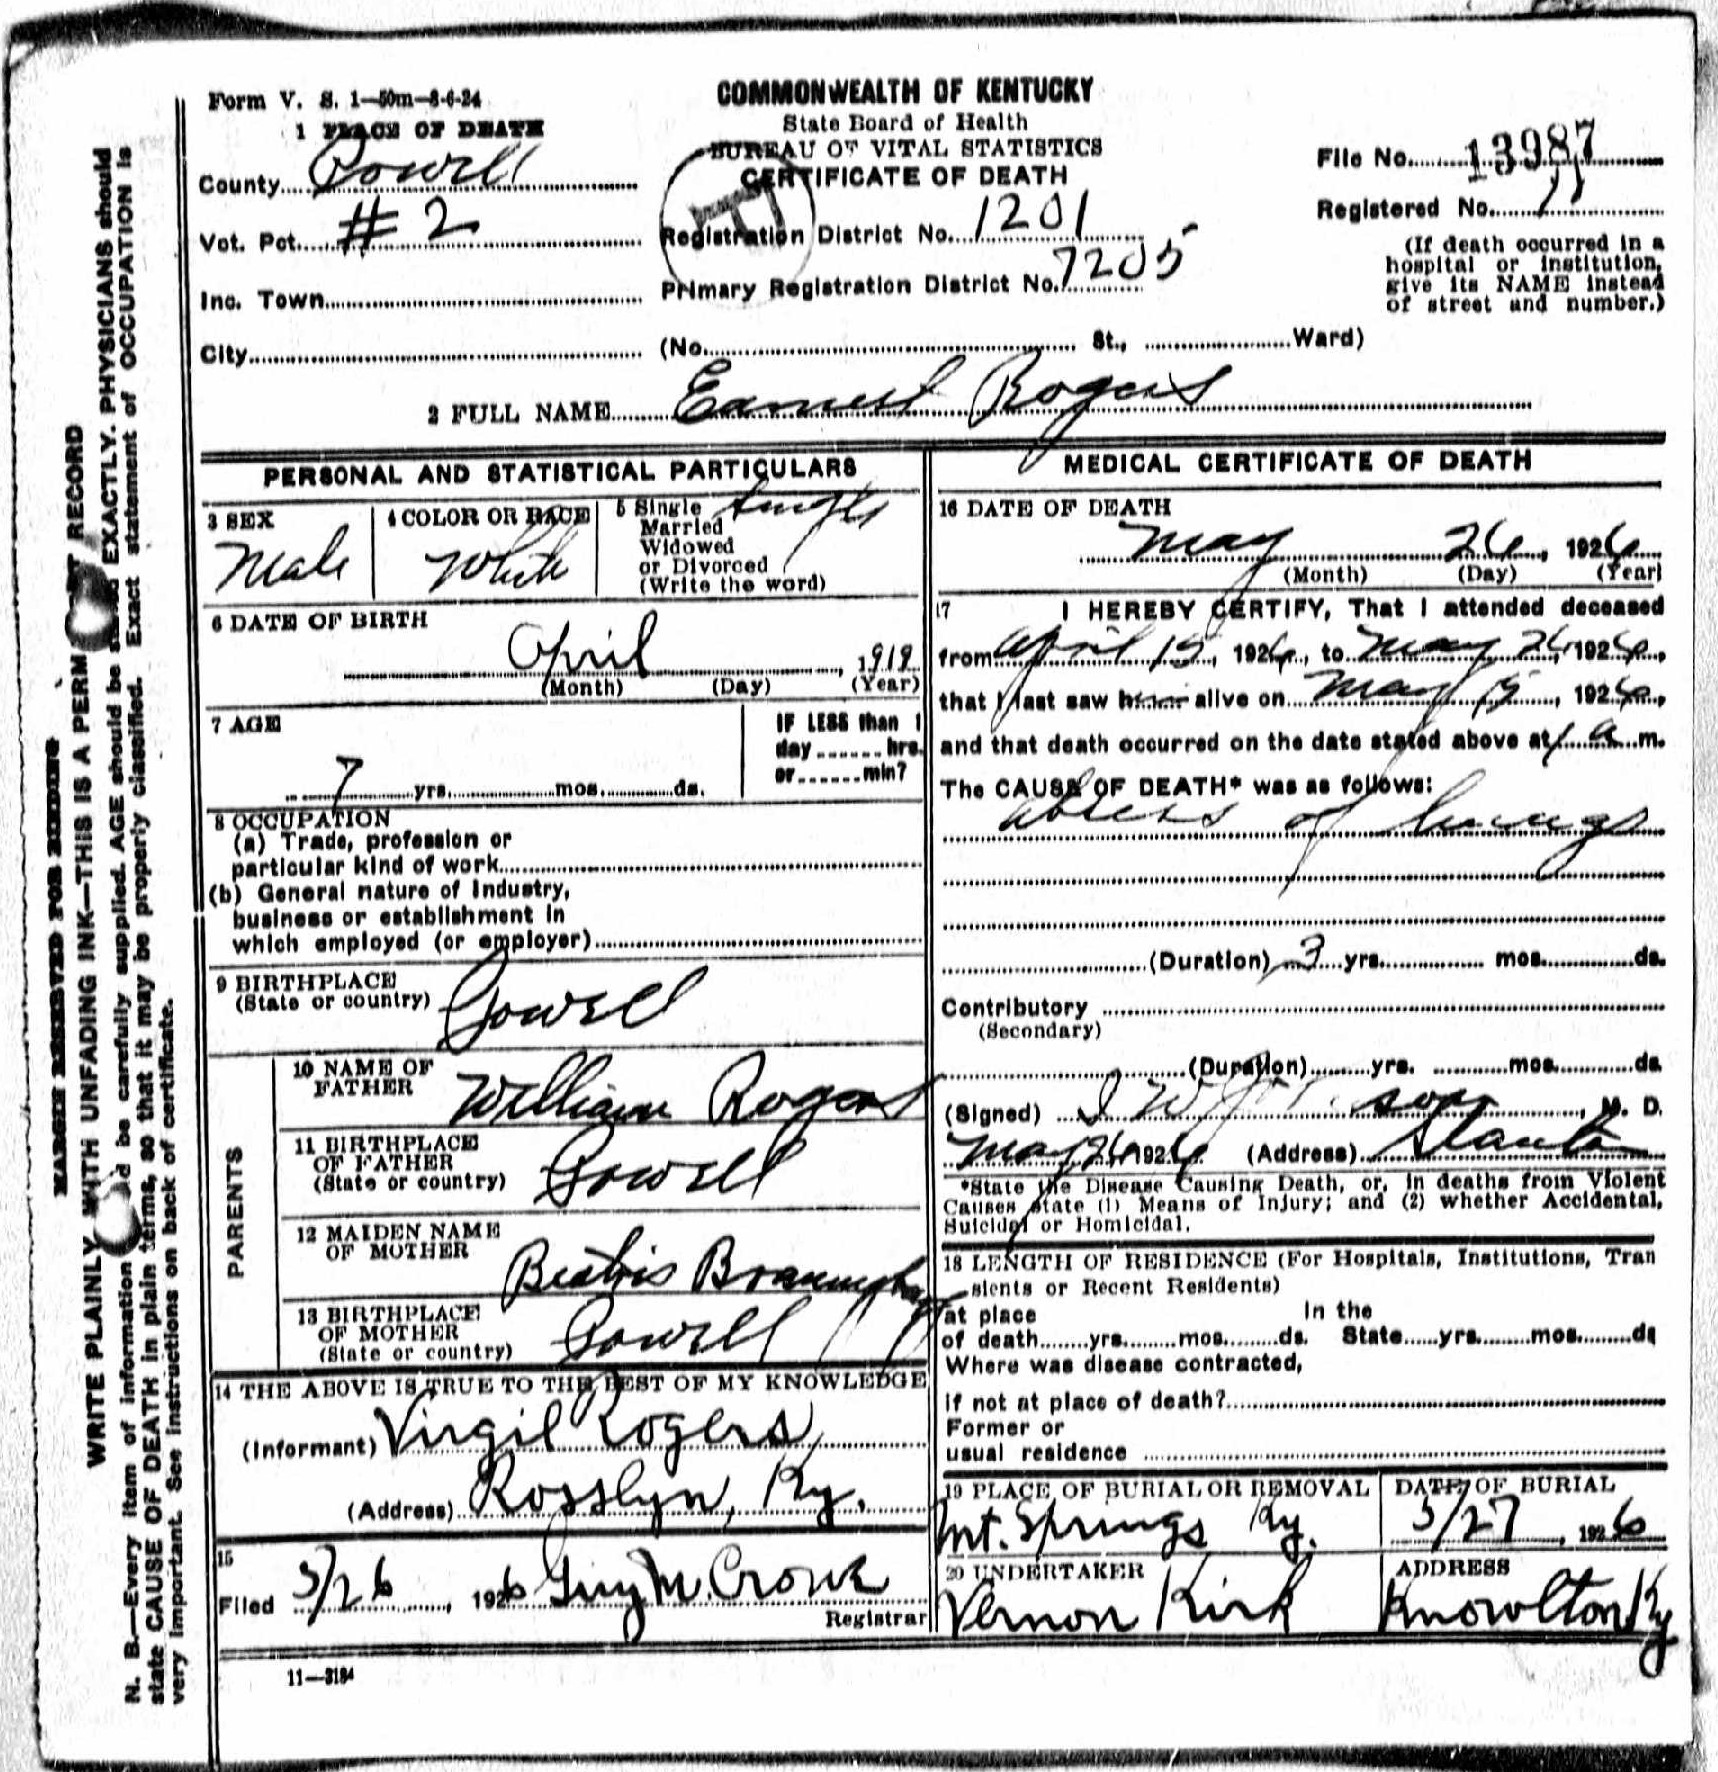 Form V. S. 1—50m—8-6-24
COMMONWEALTH OF KENTUCKY
State Board of Health
BUREAU OF VITAL STATISTICS
CERTIFICATE OF DEATH
1 PLACE OF DEATH
County Powell
Vot. Pct. #2
Inc. Town
City
Registration District No. 1201
Primary Registration District No. 7205
(No. St., Ward)
File No. 13987
Registered No. 11
(If death occurred in a
hospital or institution,
give its NAME instead
of street and number.)
2 FULL NAME Earnest Rogers
PERSONAL AND STATISTICAL PARTICULARS
3 SEX
Male
4 COLOR OR RACE
White
5 Single Single
Married
Widowed
or Divorced
(Write the word)
6 DATE OF BIRTH
April , 1919
(Month) (Day) (Year)
7 AGE
7 yrs. mos. ds.
IF LESS than 1
day hrs.
or min?
8 OCCUPATION
(a) Trade, profession or
particular kind of work
(b) General nature of Industry,
business or establishment in
which employed (or employer)
9 BIRTHPLACE
(State or country) Powell
PARENTS
10 NAME OF
FATHER William Rogers
11 BIRTHPLACE
OF FATHER
(State or country) Powell
12 MAIDEN NAME
OF MOTHER Beatris
13 BIRTHPLACE
OF MOTHER
(State or country) Powell
14 THE ABOVE IS TRUE TO THE BEST OF MY KNOWLEDGE
(Informant) Virgil Rogers
(Address) Rosslyn, Ky.
15
Filed 5/26, 1926 Guy M. Crowe
Registrar
11—3184
MEDICAL CERTIFICATE OF DEATH
16 DATE OF DEATH
May 26, 1926
(Month) (Day) (Year)
17 I HEREBY CERTIFY, That I attended deceased
from April 15, 1926, to May 26, 1926,
that I last saw him alive on May 15, 1926,
and that death occurred on the date stated above at 1 a m.
The CAUSE OF DEATH* was as follows:
abscess of lungs
(Duration) 3 yrs. mos. ds.
Contributory
(Secondary)
(Duration) yrs. mos. ds.
(Signed) I W , M. D.
May 26 1926 (Address) Stanton
*State the Disease Causing Death, or, in deaths from Violent
Causes state (1) Means of Injury; and (2) whether Accidental,
Suicidal or Homicidal.
18 LENGTH OF RESIDENCE (For Hospitals, Institutions, Tran
sients or Recent Residents)
at place In the
of death yrs. mos. ds. State yrs. mos. ds
Where was disease contracted,
if not at place of death?
Former or
usual residence
19 PLACE OF BURIAL OR REMOVAL
Mt. Springs Ky.
DATE OF BURIAL
5/27, 1926
20 UNDERTAKER
Vernon Kirk
ADDRESS
Knowlton Ky
MARGIN RESERVED FOR BINDING
WRITE PLAINLY WITH UNFADING INK—THIS IS A PERM RECORD
N. B.—Every item of information be carefully supplied. AGE should be EXACTLY. PHYSICIANS should
state CAUSE OF DEATH in plain terms, so that it may be properly classified. Exact statement of OCCUPATION is
very important. See instructions on back of certificate.